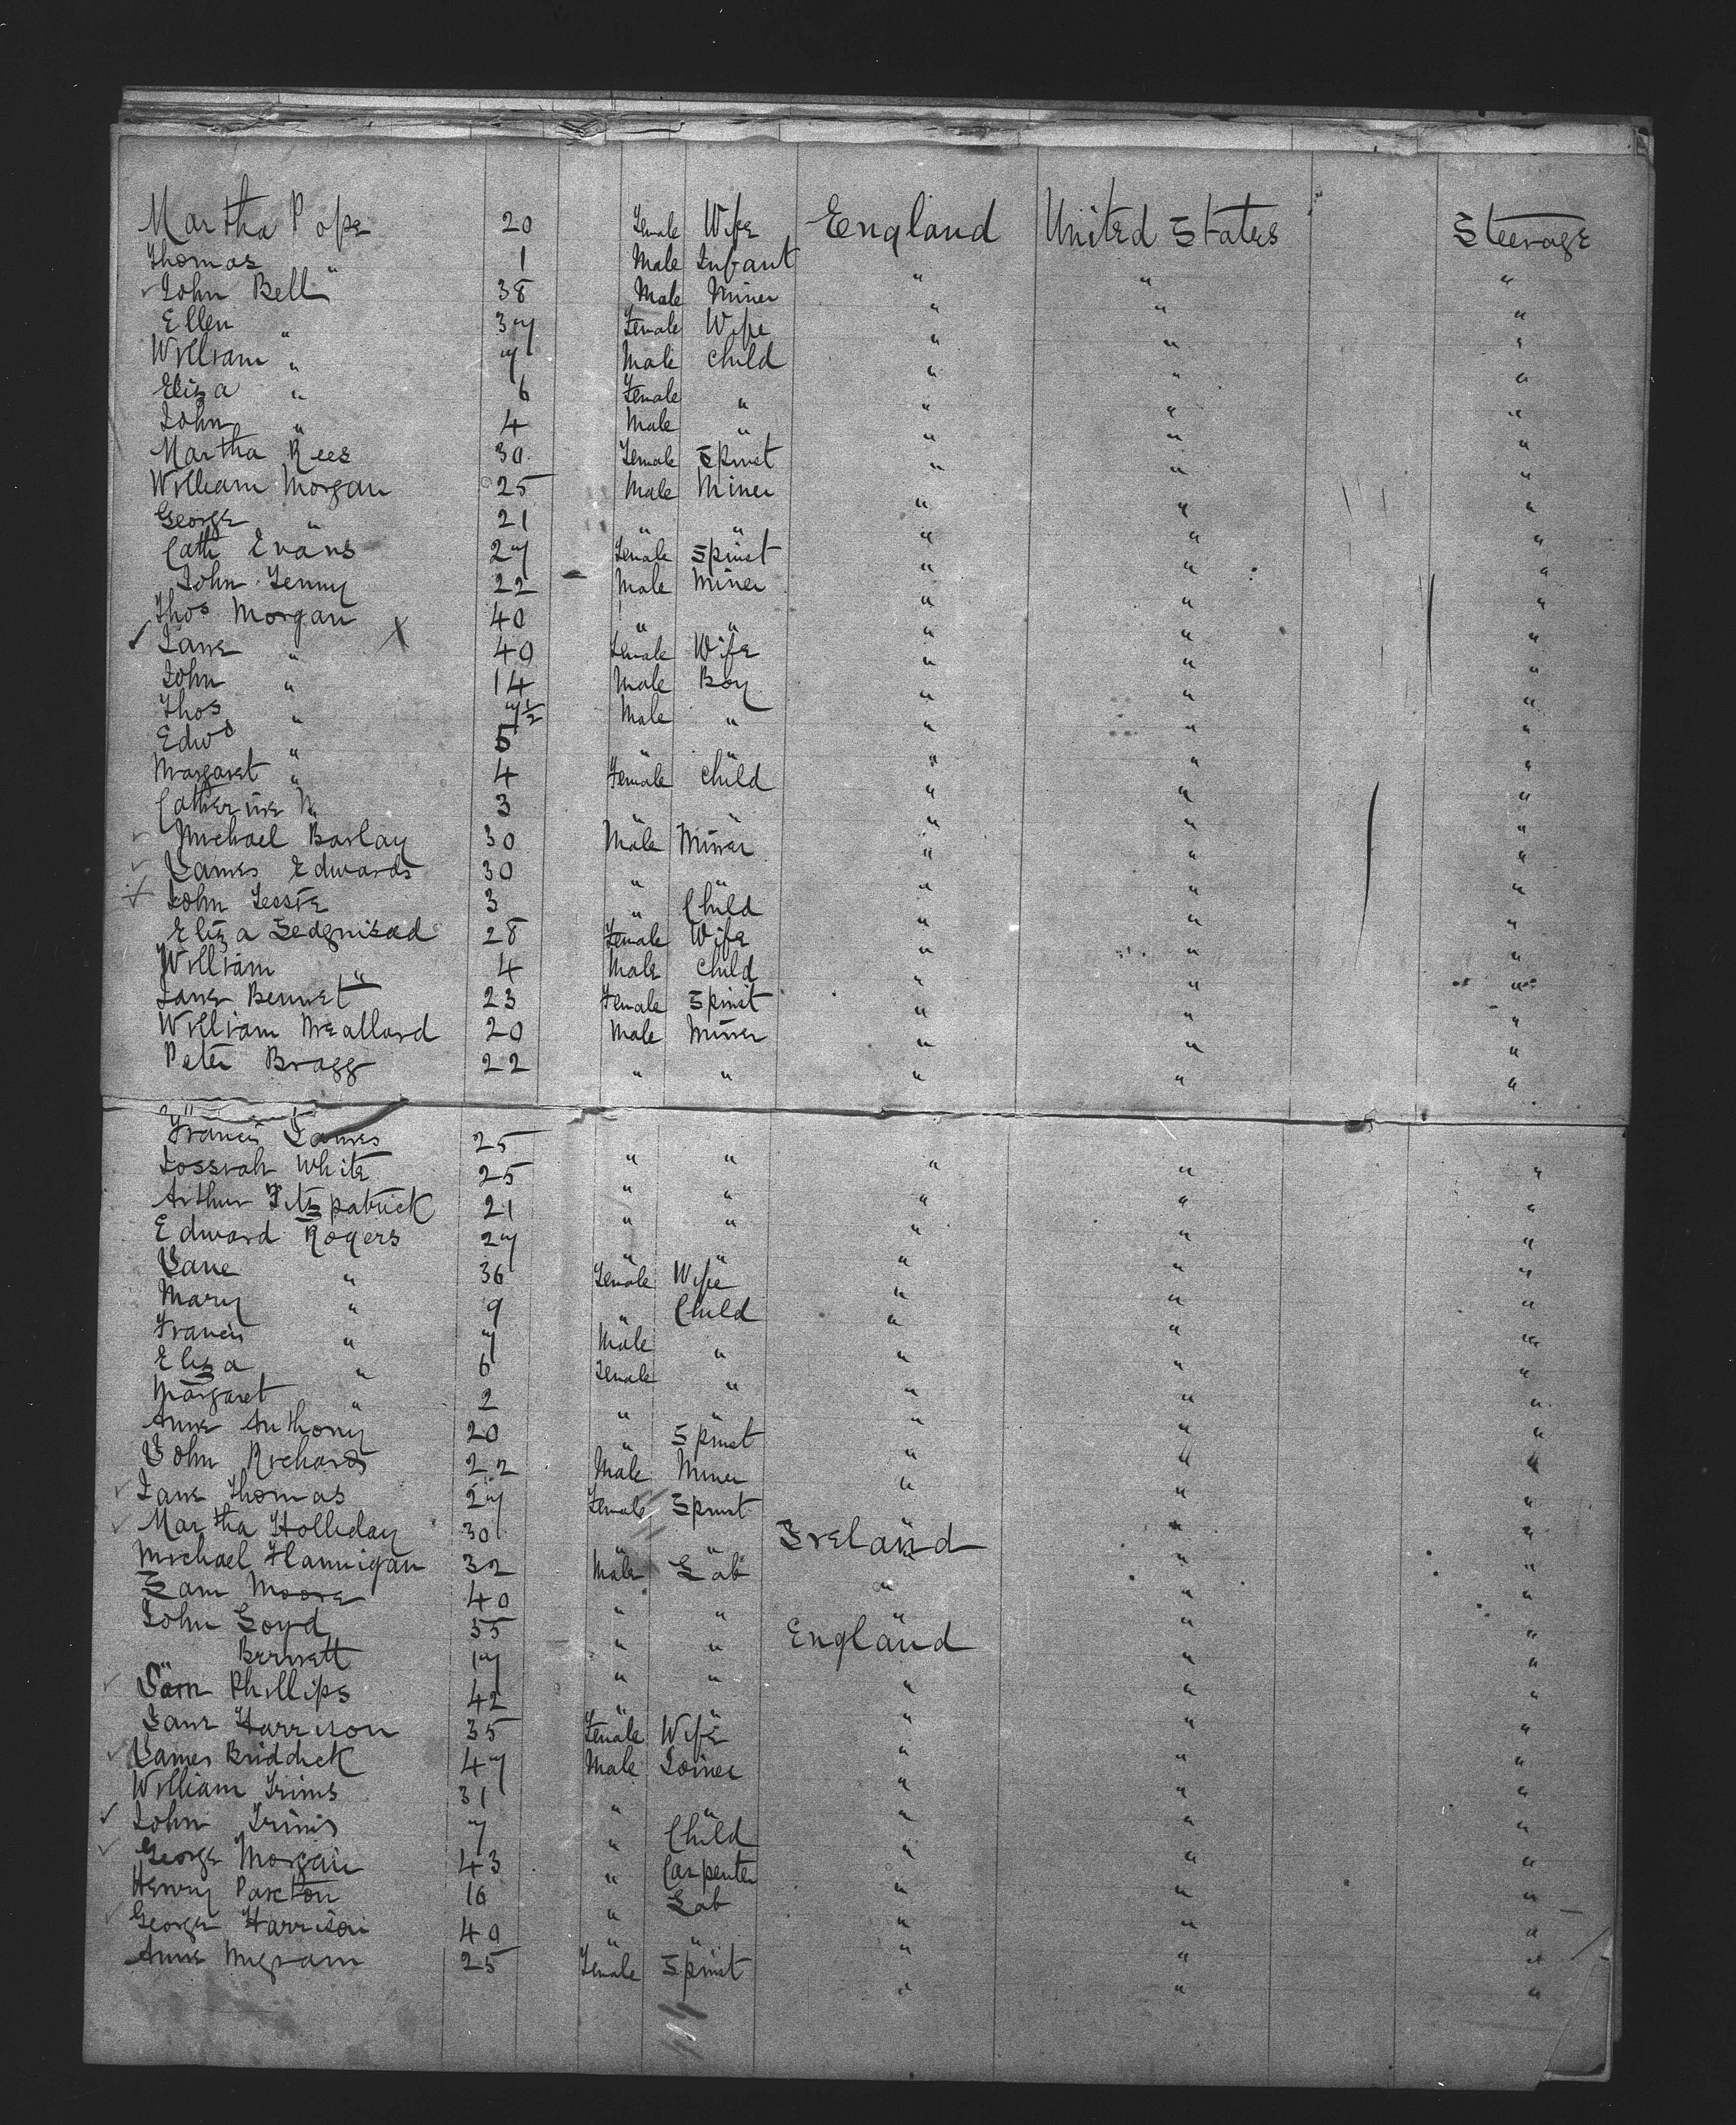 Martha Pope 20 Female Wife England United States " Steerage
Thomas " 1 Male Infant " " "
John Bell 38 Male Miner " " "
Ellen " 37 Female Wife " " "
William " 7 Male Child " " "
Eliza " 6 Female " " " "
John " 4 Male " " " "
Martha Rees 30 Female Spinst " " "
William Morgan 25 Male Miner " " "
George " 21 " " " " "
Cath Evans 27 Female Spinst " " "
John 22 Male Miner " " "
Thos Morgan 40 " " " " "
Jane " 40 Female Wife " " "
John " 14 Male Boy " " "
Thos " 7½ Male " " " "
Edwd " 5 " " " " "
Margaret " 4 Female Child " " "
Catherine M " 3 " " " " "
Michael Barlay 30 Male Miner " " "
James Edwards 30 " " " " "
John 3 " Child " " "
Eliza 28 Female Wife " " "
William " 4 Male Child " " "
Jane Bennet 23 Female Spinst " " "
William Meallard 20 Male Miner " " "
Peter Bragg 22 " " " " "
Francis James 25 " " " " "
Jossiah White 25 " " " " "
Arthur Fitzpatrick 21 " " " " "
Edward Rogers 27 " " " " "
Jane " 36 Female Wife " " "
Mary " 9 " Child " " "
Francis " 7 Male " " " "
Eliza " 6 Female " " " "
Margaret " 2 " " " " "
Anne Anthony 20 " Spinst " " "
John Richards 22 Male Miner " " "
Jane Thomas 27 Female Spinst " " "
Martha Holliday 30 " " Ireland " "
Michael Flannigan 32 Male Lab " " "
Sam Moore 40 " " " " "
John Loyd 55 " " England " "
" Bernett 17 " " " " "
Sam Phillips 42 " " " " "
Jane Harrison 35 Female Wife " " "
James Briddick 47 Male Joiner " " "
William Trims 31 " " " " "
John Trims 7 " Child " " "
George Morgan 43 " Carpenter " " "
Henry Paxton 16 " Lab " " "
George Harrison 40 " " " " "
Anne 25 Female Spinst " " "